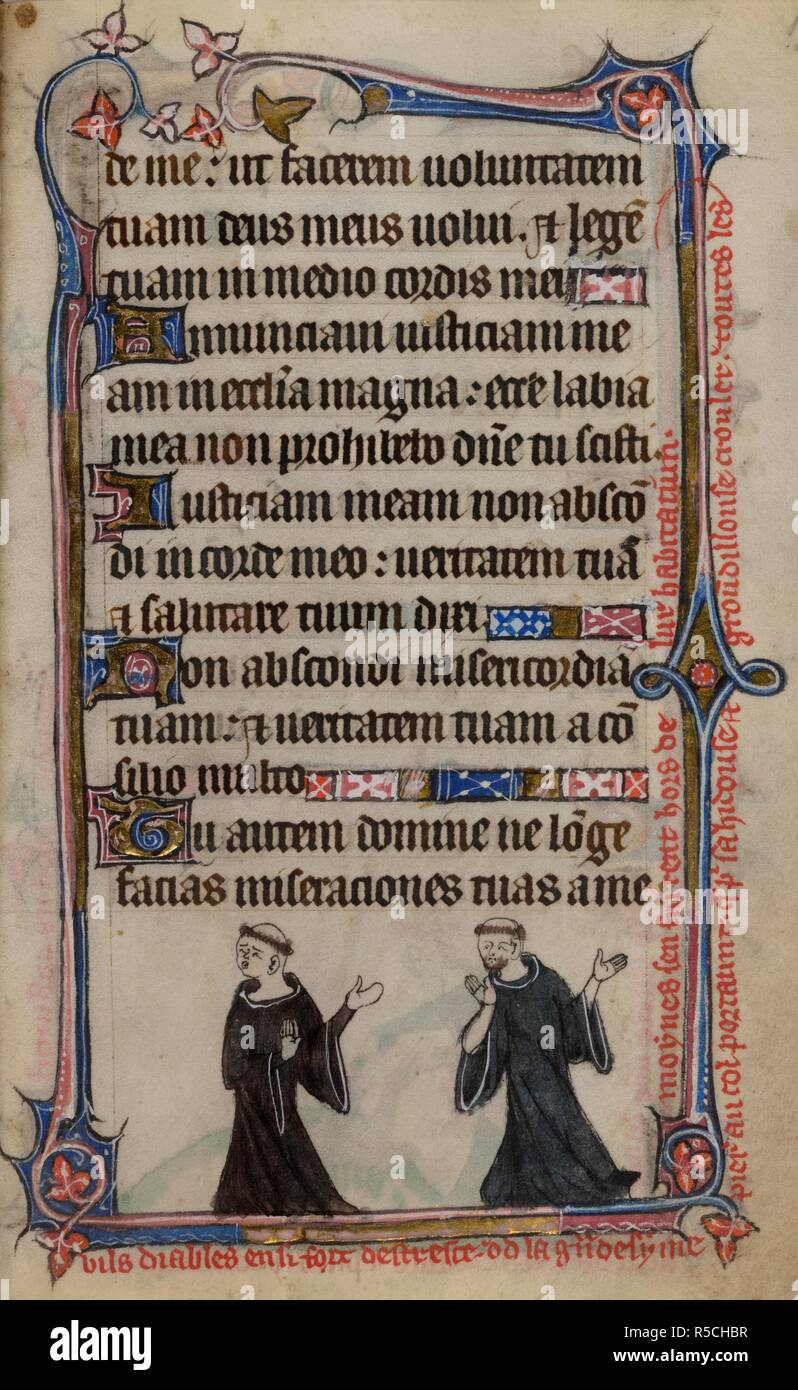 de me : ut facerem uoluntatem
tuam deus meus uolui . et legē
tuam in medio cordis mei
Annunciam iusticiam me
am in ecclīa magna : ecce labia
mea non prohibebo dn̄e tu scisti .
Iusticiam meam non abscō
di in corde meo : ueritatem tuā
et salutare tuum dixi
Non abscondi misericordiā
tuam : et ueritatem tuam a cō
silio multo
Tu autem domine ne lōge
facias miseraciones tuas a me
vils diables ensi fort destresce . od la
moynes sen hors de lur habitatiun .
pier au col portaunt hidouse grōdillouse crouler . toutes les
alamy
Image ID: R5CHBR
www.alamy.com